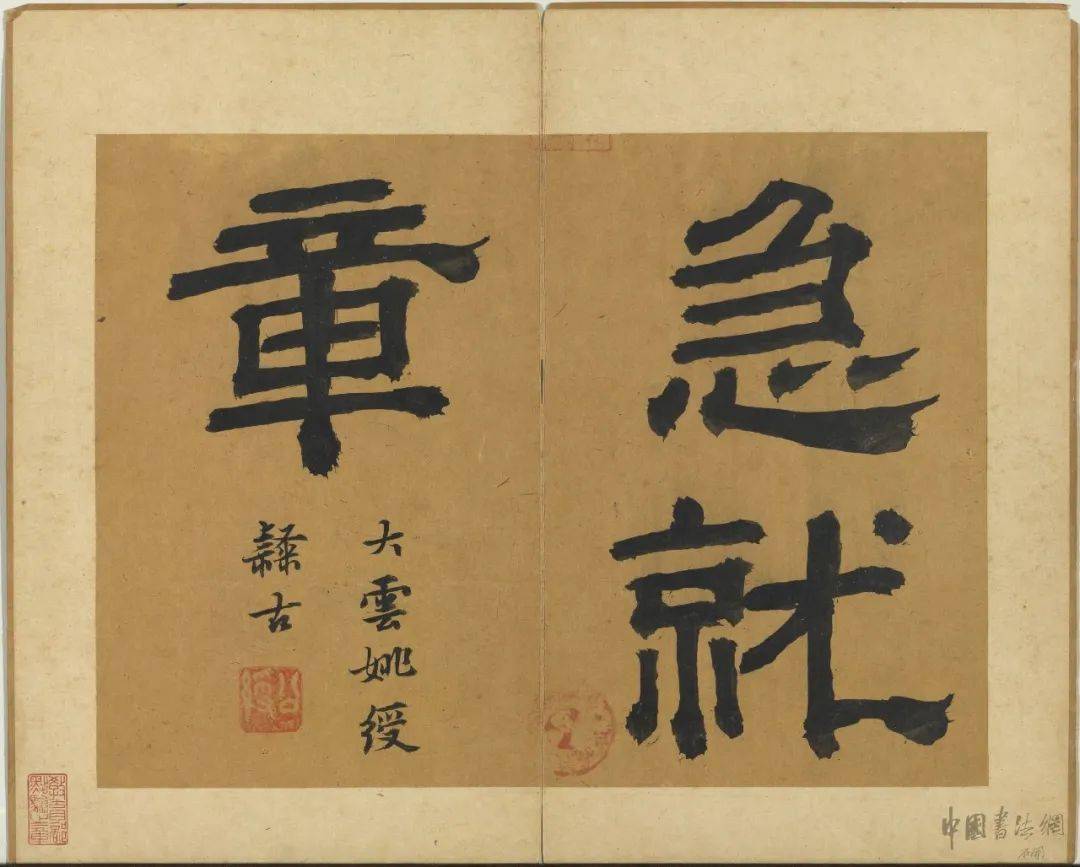 急就
章
大雲姚綬
隸古
中國書法網